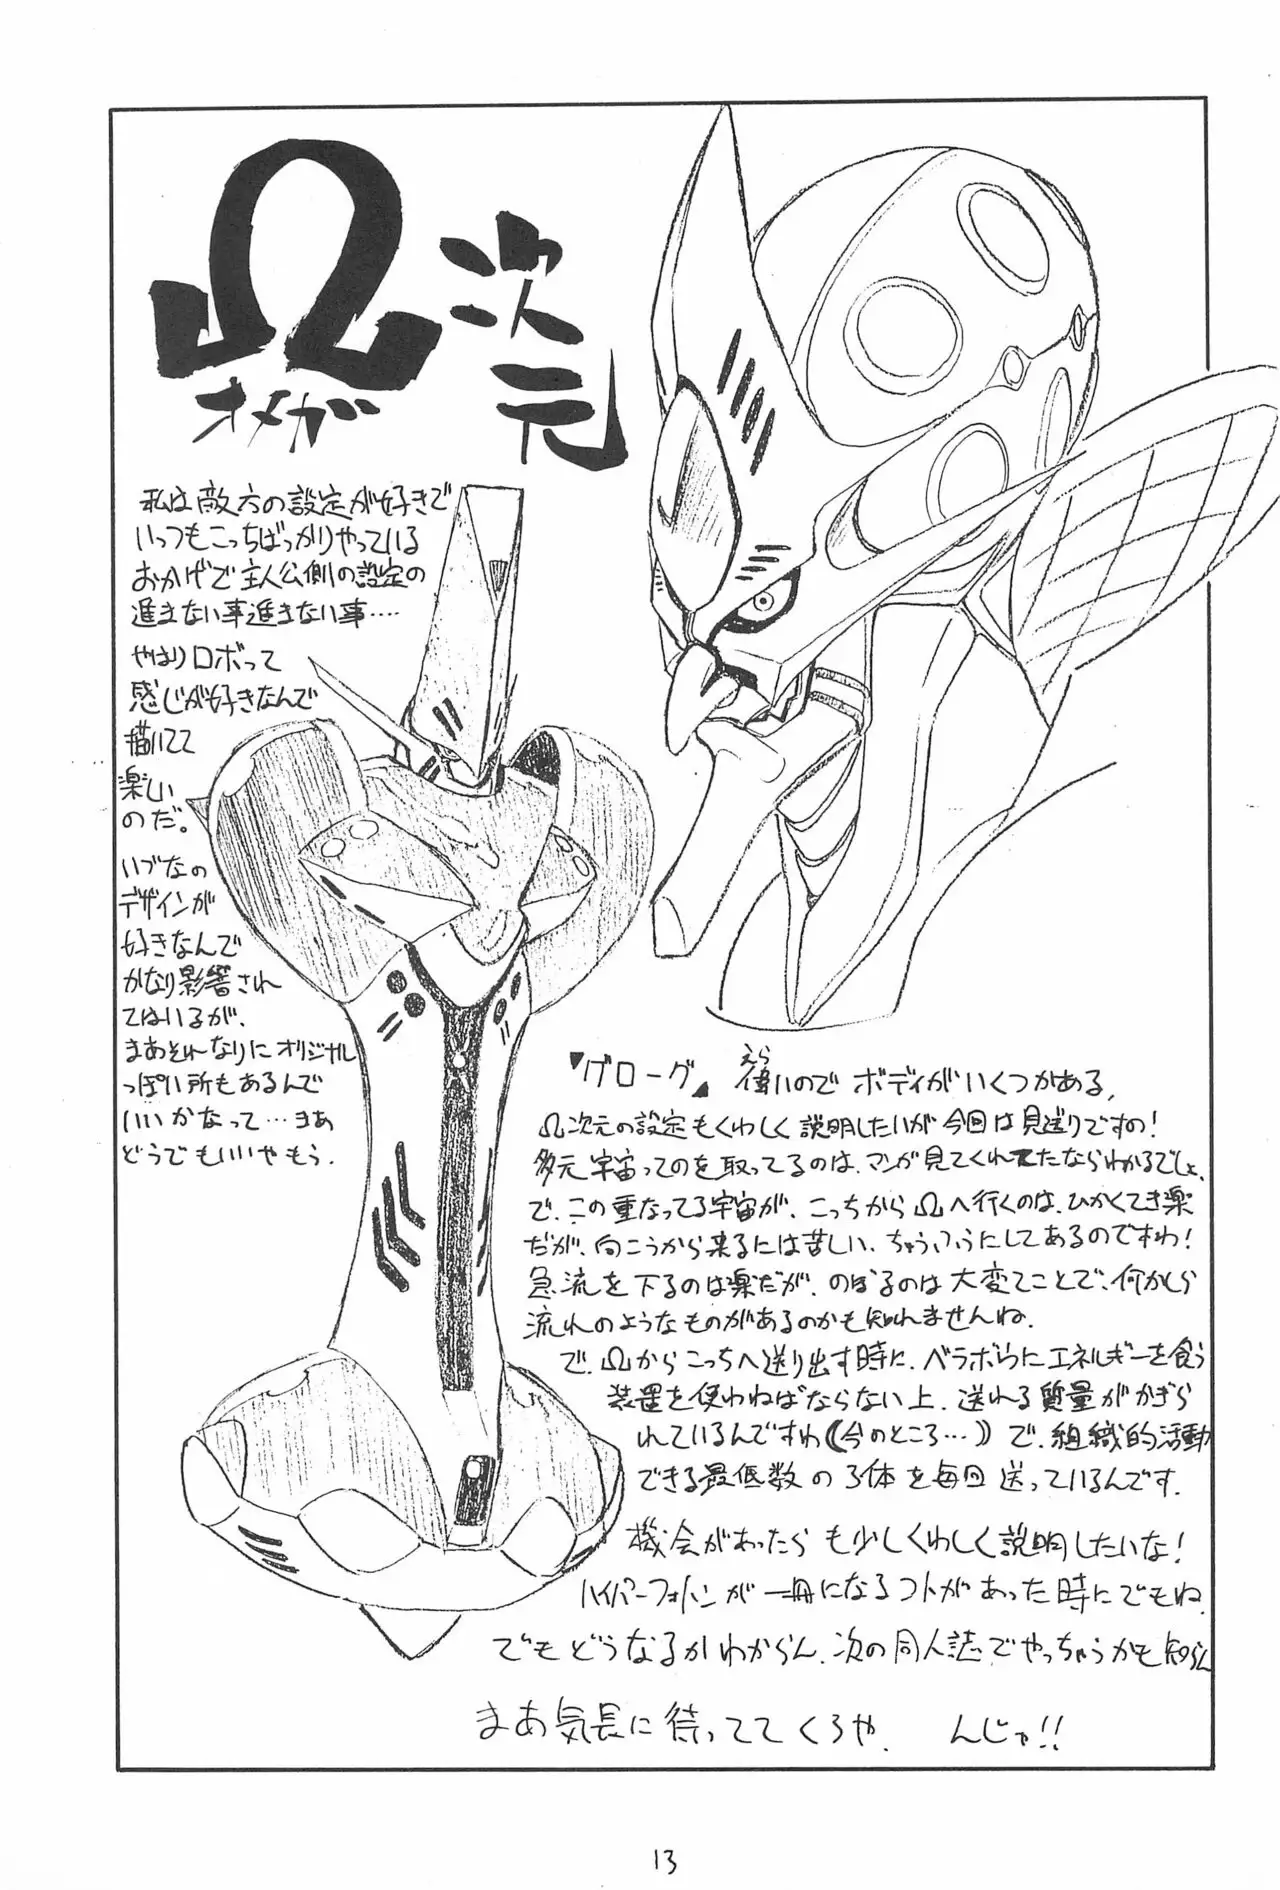 Ω次元
オメガ
私は敵方の設定が好きで
いつもこっちばっかりやっている
おかげで主人公側の設定の
進まない事進まない事‥‥
やはりロボって
感じが好きなんで
描いてて
楽しい
のだ。
いづなの
デザインが
好きなんで
かなり影響され
てはいるが、
まあそれなりにオリジナル
っぽい所もあるんで
いいかなって…まあ
どうでもいいやもう.
『ゲローグ』偉いのでボディがいくつかある,
えら
Ω次元の設定もくわしく説明したいが今回は見送りですの!
多元宇宙ってのを取ってるのは、マンガ見てくれてたならわかるでしょ、
で、この重なってる宇宙が、こっちからΩへ行くのは、ひかくてき楽
だが、向こうから来るには苦しい、ちゅうふうにしてあるのですわ!
急流を下るのは楽だが、のぼるのは大変てことで、何かしら
流れのようなものがあるのかも知れませんね.
で、Ωからこっちへ送り出す時に、ベラボらにエネルギーを食う
装置を使わねばならない上、送れる質量がかぎら
れているんですわ((今のところ…))で、組織的活動
できる最低数の3体を毎回送っているんです.
機会があったらも少しくわしく説明したいな!
ハイパーフォルハンが一冊になるコトがあった時にでもね.
でもどうなるかわからん、次の同人誌でやっちゃうかも知らん
まあ気長に待っててくろや. んじゃ!!
13